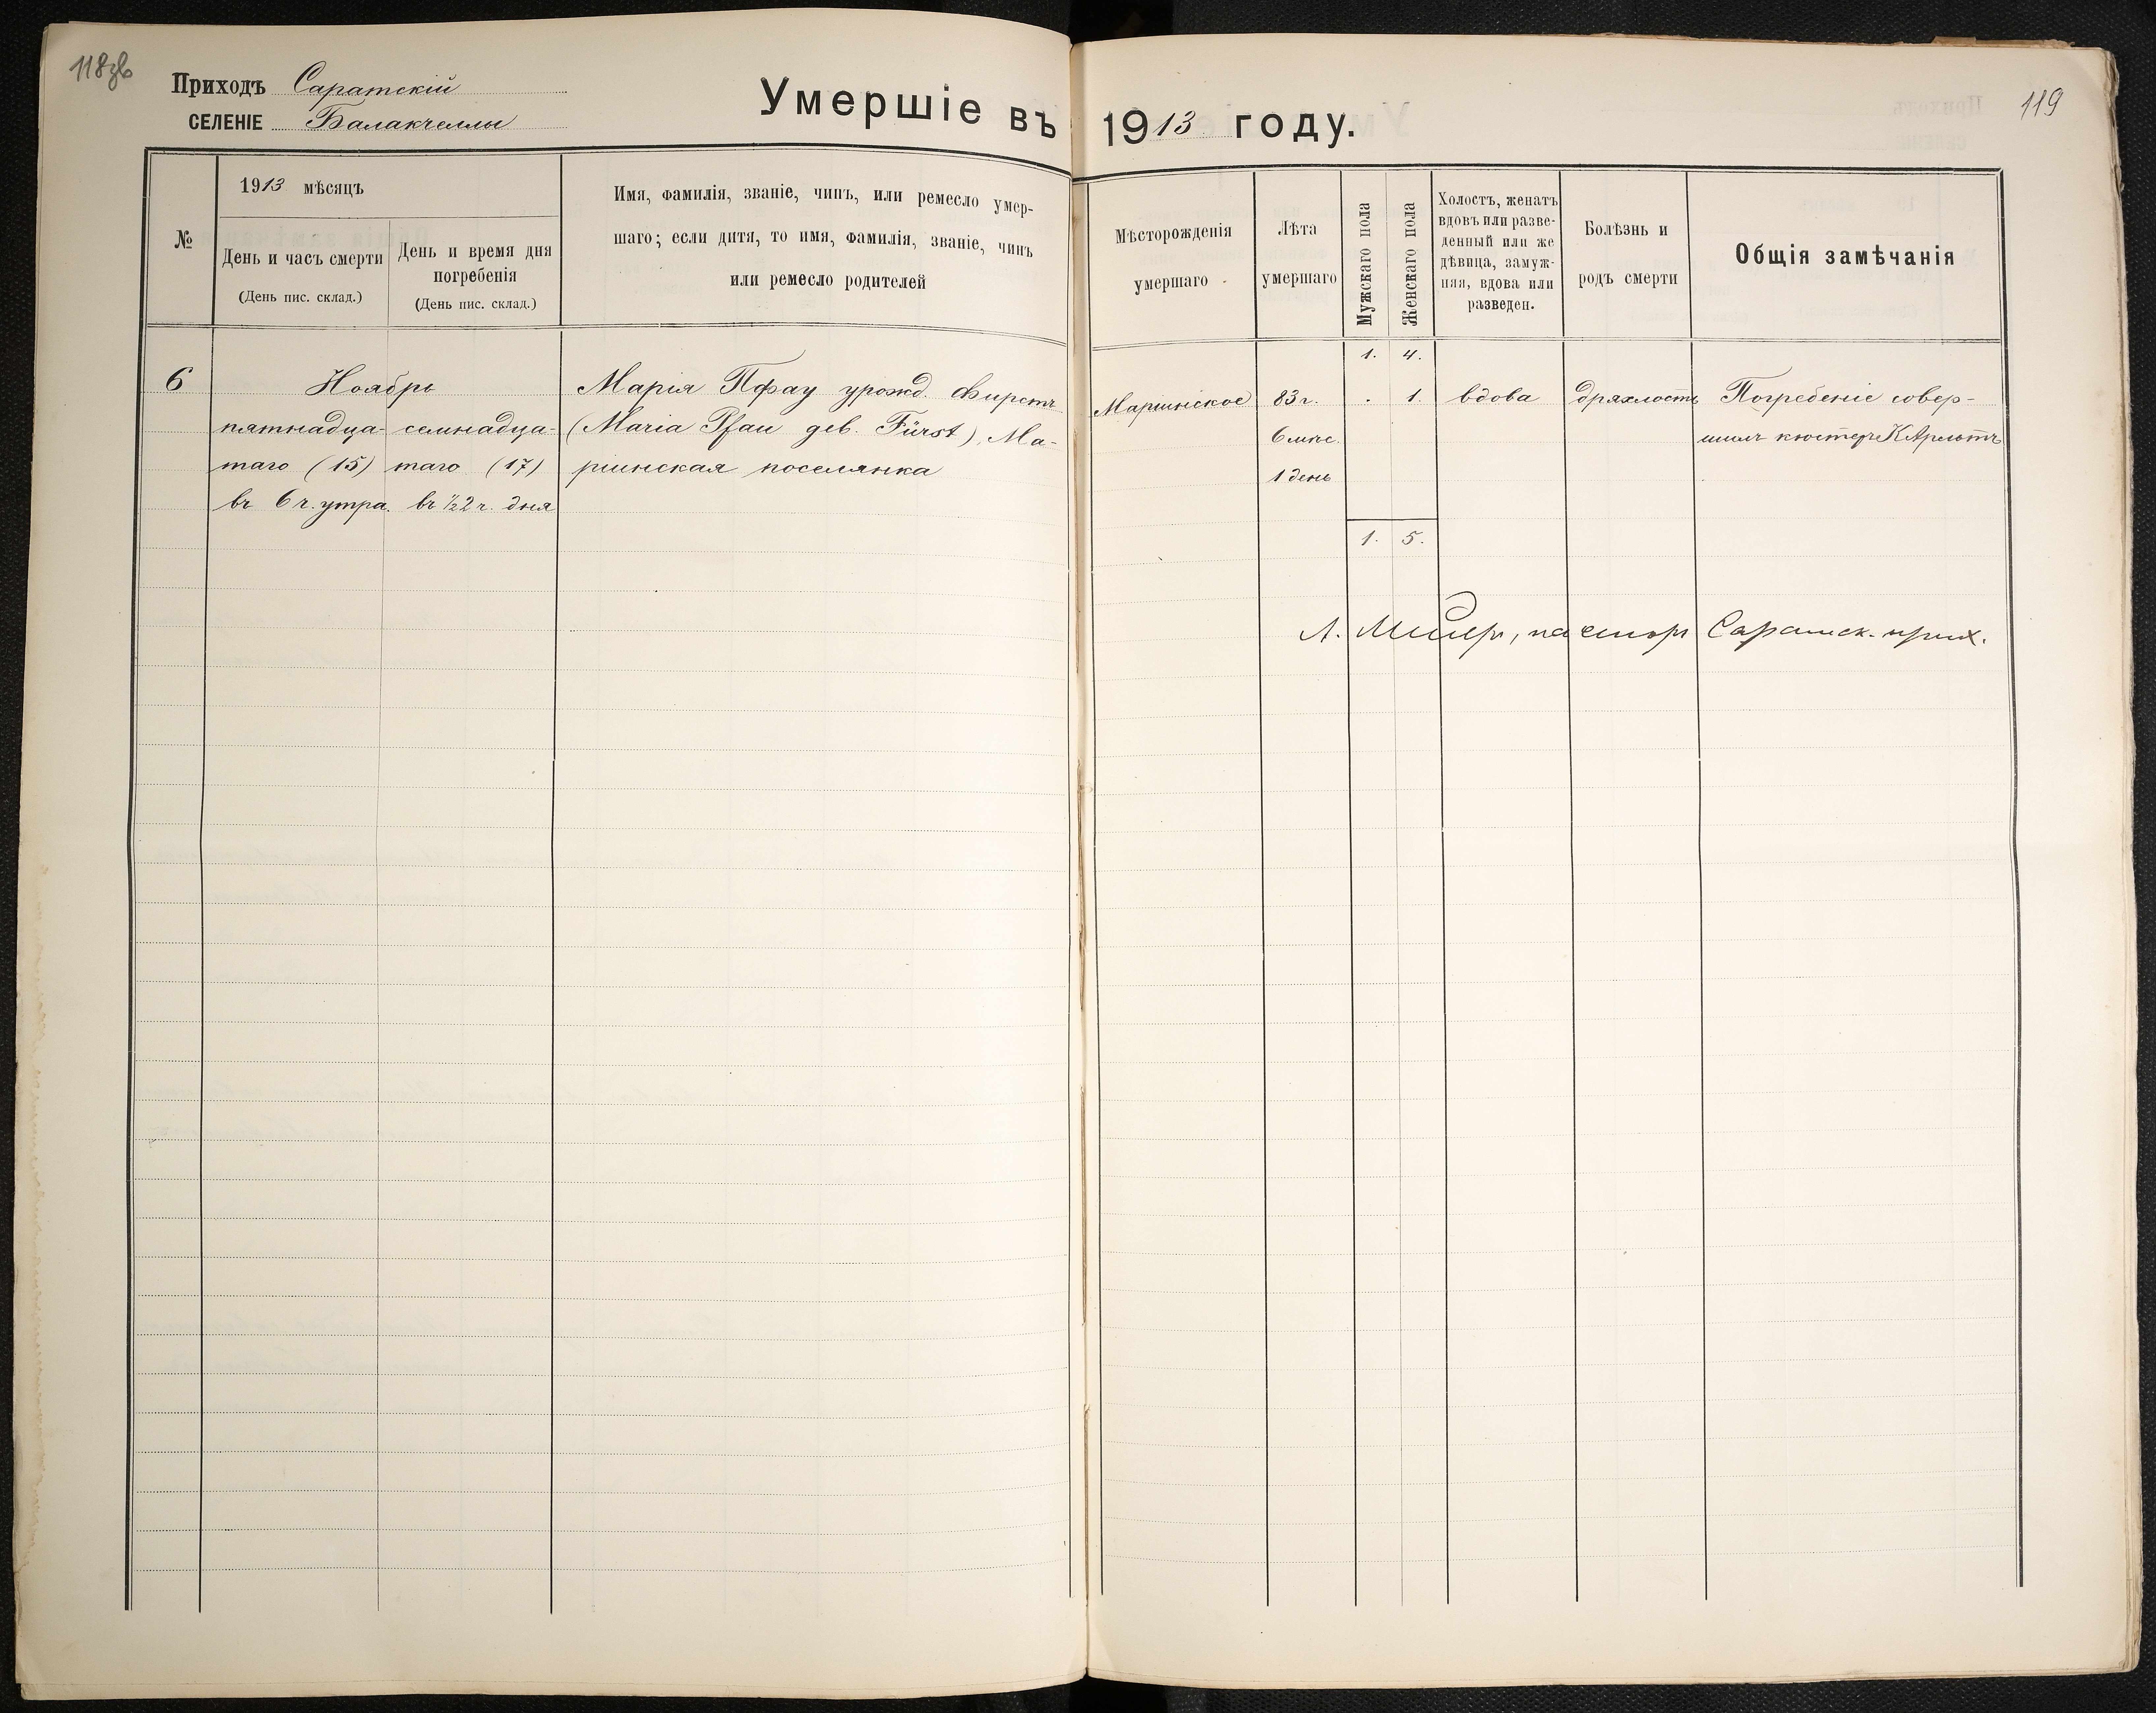 118зв
Приходъ Саратскій
СЕЛЕНІЕ Балакчеллы
Умершіе въ 1913 году.
119
№
1913 мѣсяцъ
День и часъ смерти
(День пис. склад.)
День и время дня
погребенія
(День пис. склад.)
Имя, фамилія, званіе, чинъ, или ремесло умер-
шаго; если дитя, то имя, фамилія, званіе, чинъ
или ремесло родителей
Мѣсторожденія
умершаго
Лѣта
умершаго
Мужскаго пола
Женскаго пола
Холостъ, женатъ
вдовъ или разве-
денный или же
дѣвица, замуж-
няя, вдова или
разведен.
Болѣзнь и
родъ смерти
Общія замѣчанія
1. 4.
6
Ноябрь
пятнадца-
таго (15)
въ 6 ч. утра.
семнадца-
таго (17)
въ ½2 ч. дня
Марія Пфау урожд. Фирстъ
(Maria Pfau geb. Fürst), Ма-
ріинская поселянка
Маріинское
83 г.
6 мѣс.
1 день
. 1.
вдова
дряхлость
Погребеніе совер-
шилъ кюстеръ К Арльтъ
1. 5.
А. Мейеръ, пасторъ Саратск. прих.